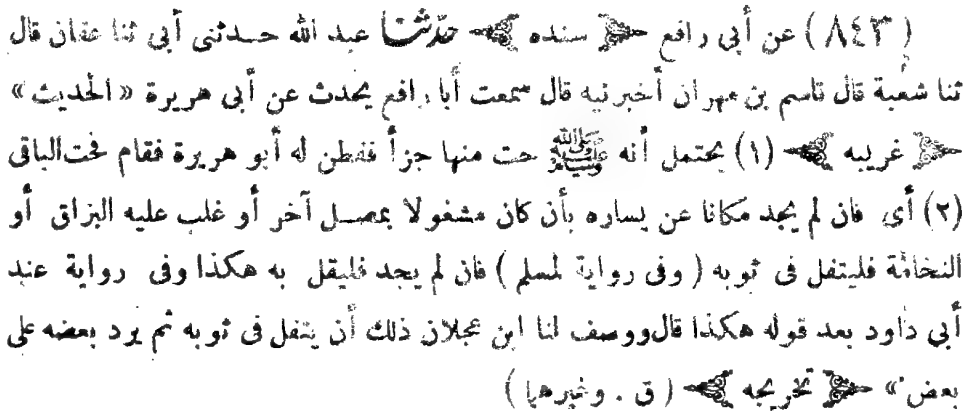 ( ٨٤٣ ) عن أبى رافع ﴿ سنده ﴾ حدّثنا عبد الله حدثنى أبى ثنا عفان قال
ثنا شعبة قال قاسم بن مهران أخبرنيه قال سمعت أبا رافع يحدث عن أبى هريرة « الحديث »
﴿ غريبه ﴾ (١) يحتمل أنه ﷺ حت منها جزأ ففطن له أبو هريرة فقام فحت الباقى
(٢) أى فان لم يجد مكانا عن يساره بأن كان مشغولا بمصل آخر أو غلب عليه البزاق أو
النخامة فليتفل فى ثوبه ( وفى رواية لمسلم ) فان لم يجد فليقل به هكذا وفى رواية عند
أبى داود بعد قوله هكذا قال ووصف لنا ابن عجلان ذلك أن يتفل فى ثوبه ثم يرد بعضه على
بعض » ﴿ تخريجه ﴾ ( ق . وغيرهما )